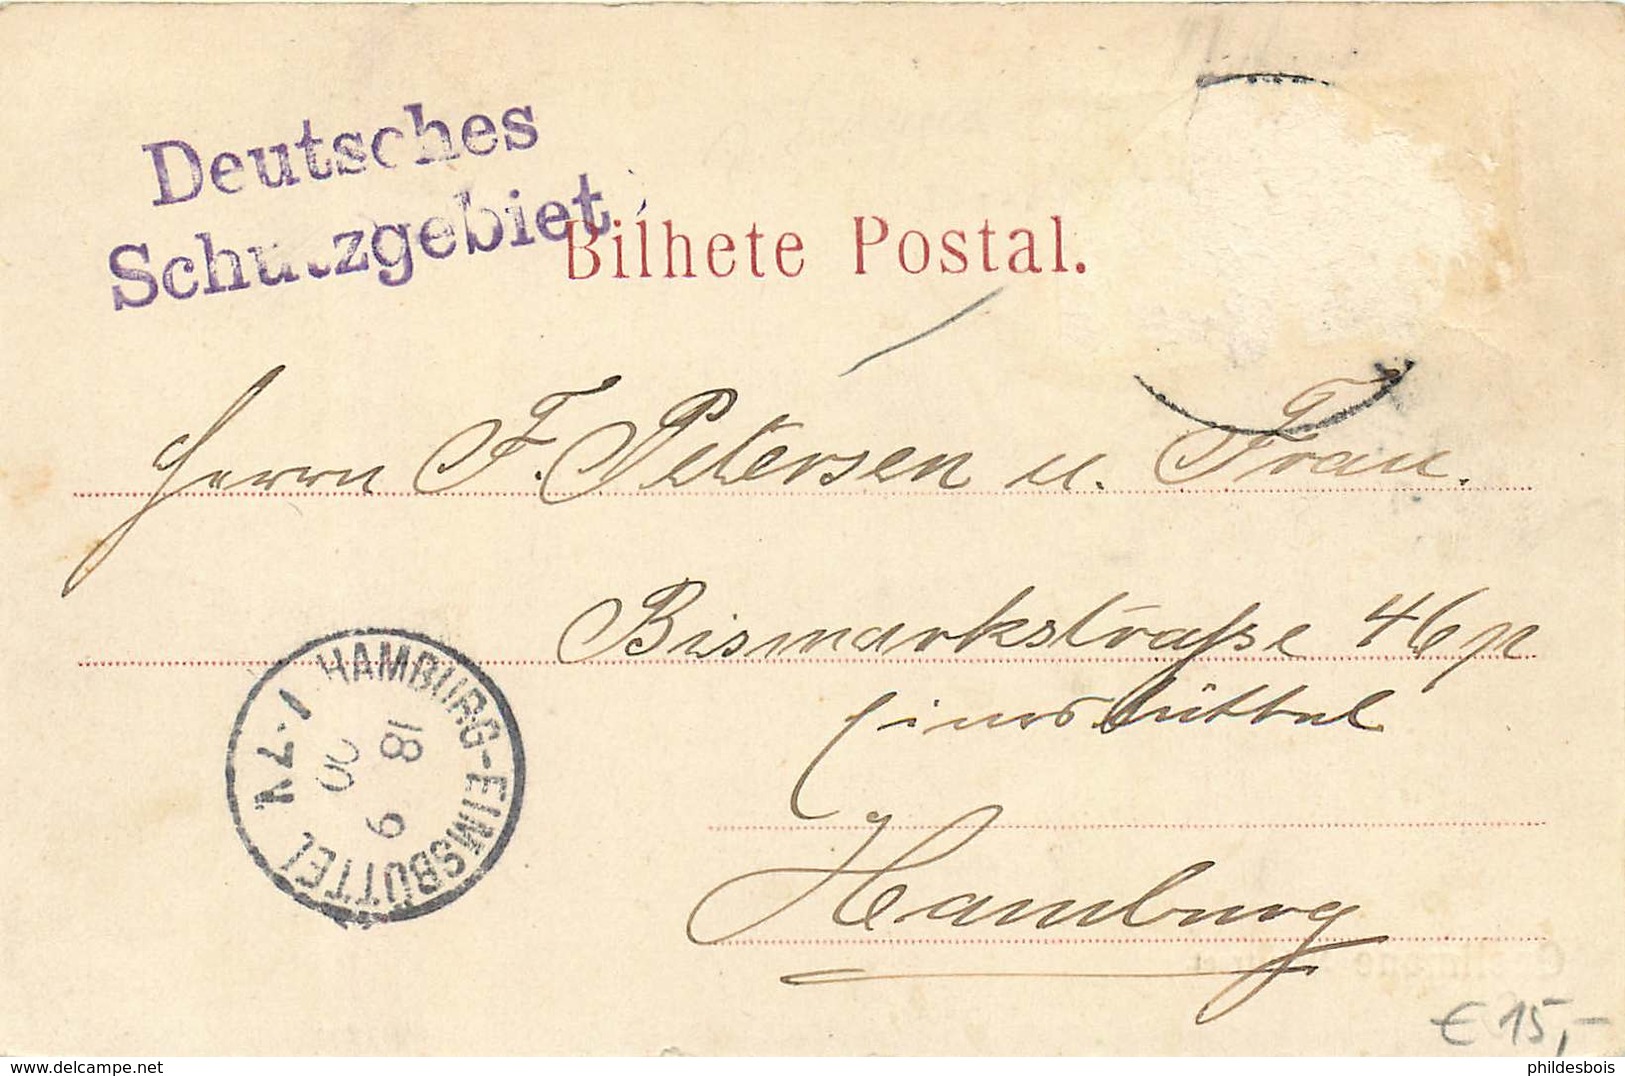 Deutsches
Schutzgebiet
Bilhete Postal.
Herrn F. Petersen u. Frau.
Bismarkstraße 46 p
Eimsbüttel
Hamburg
HAMBURG-EIMSBÜTTEL
18 9
00
7-7 N
€ 15,-
delcampe.net
phildesbois